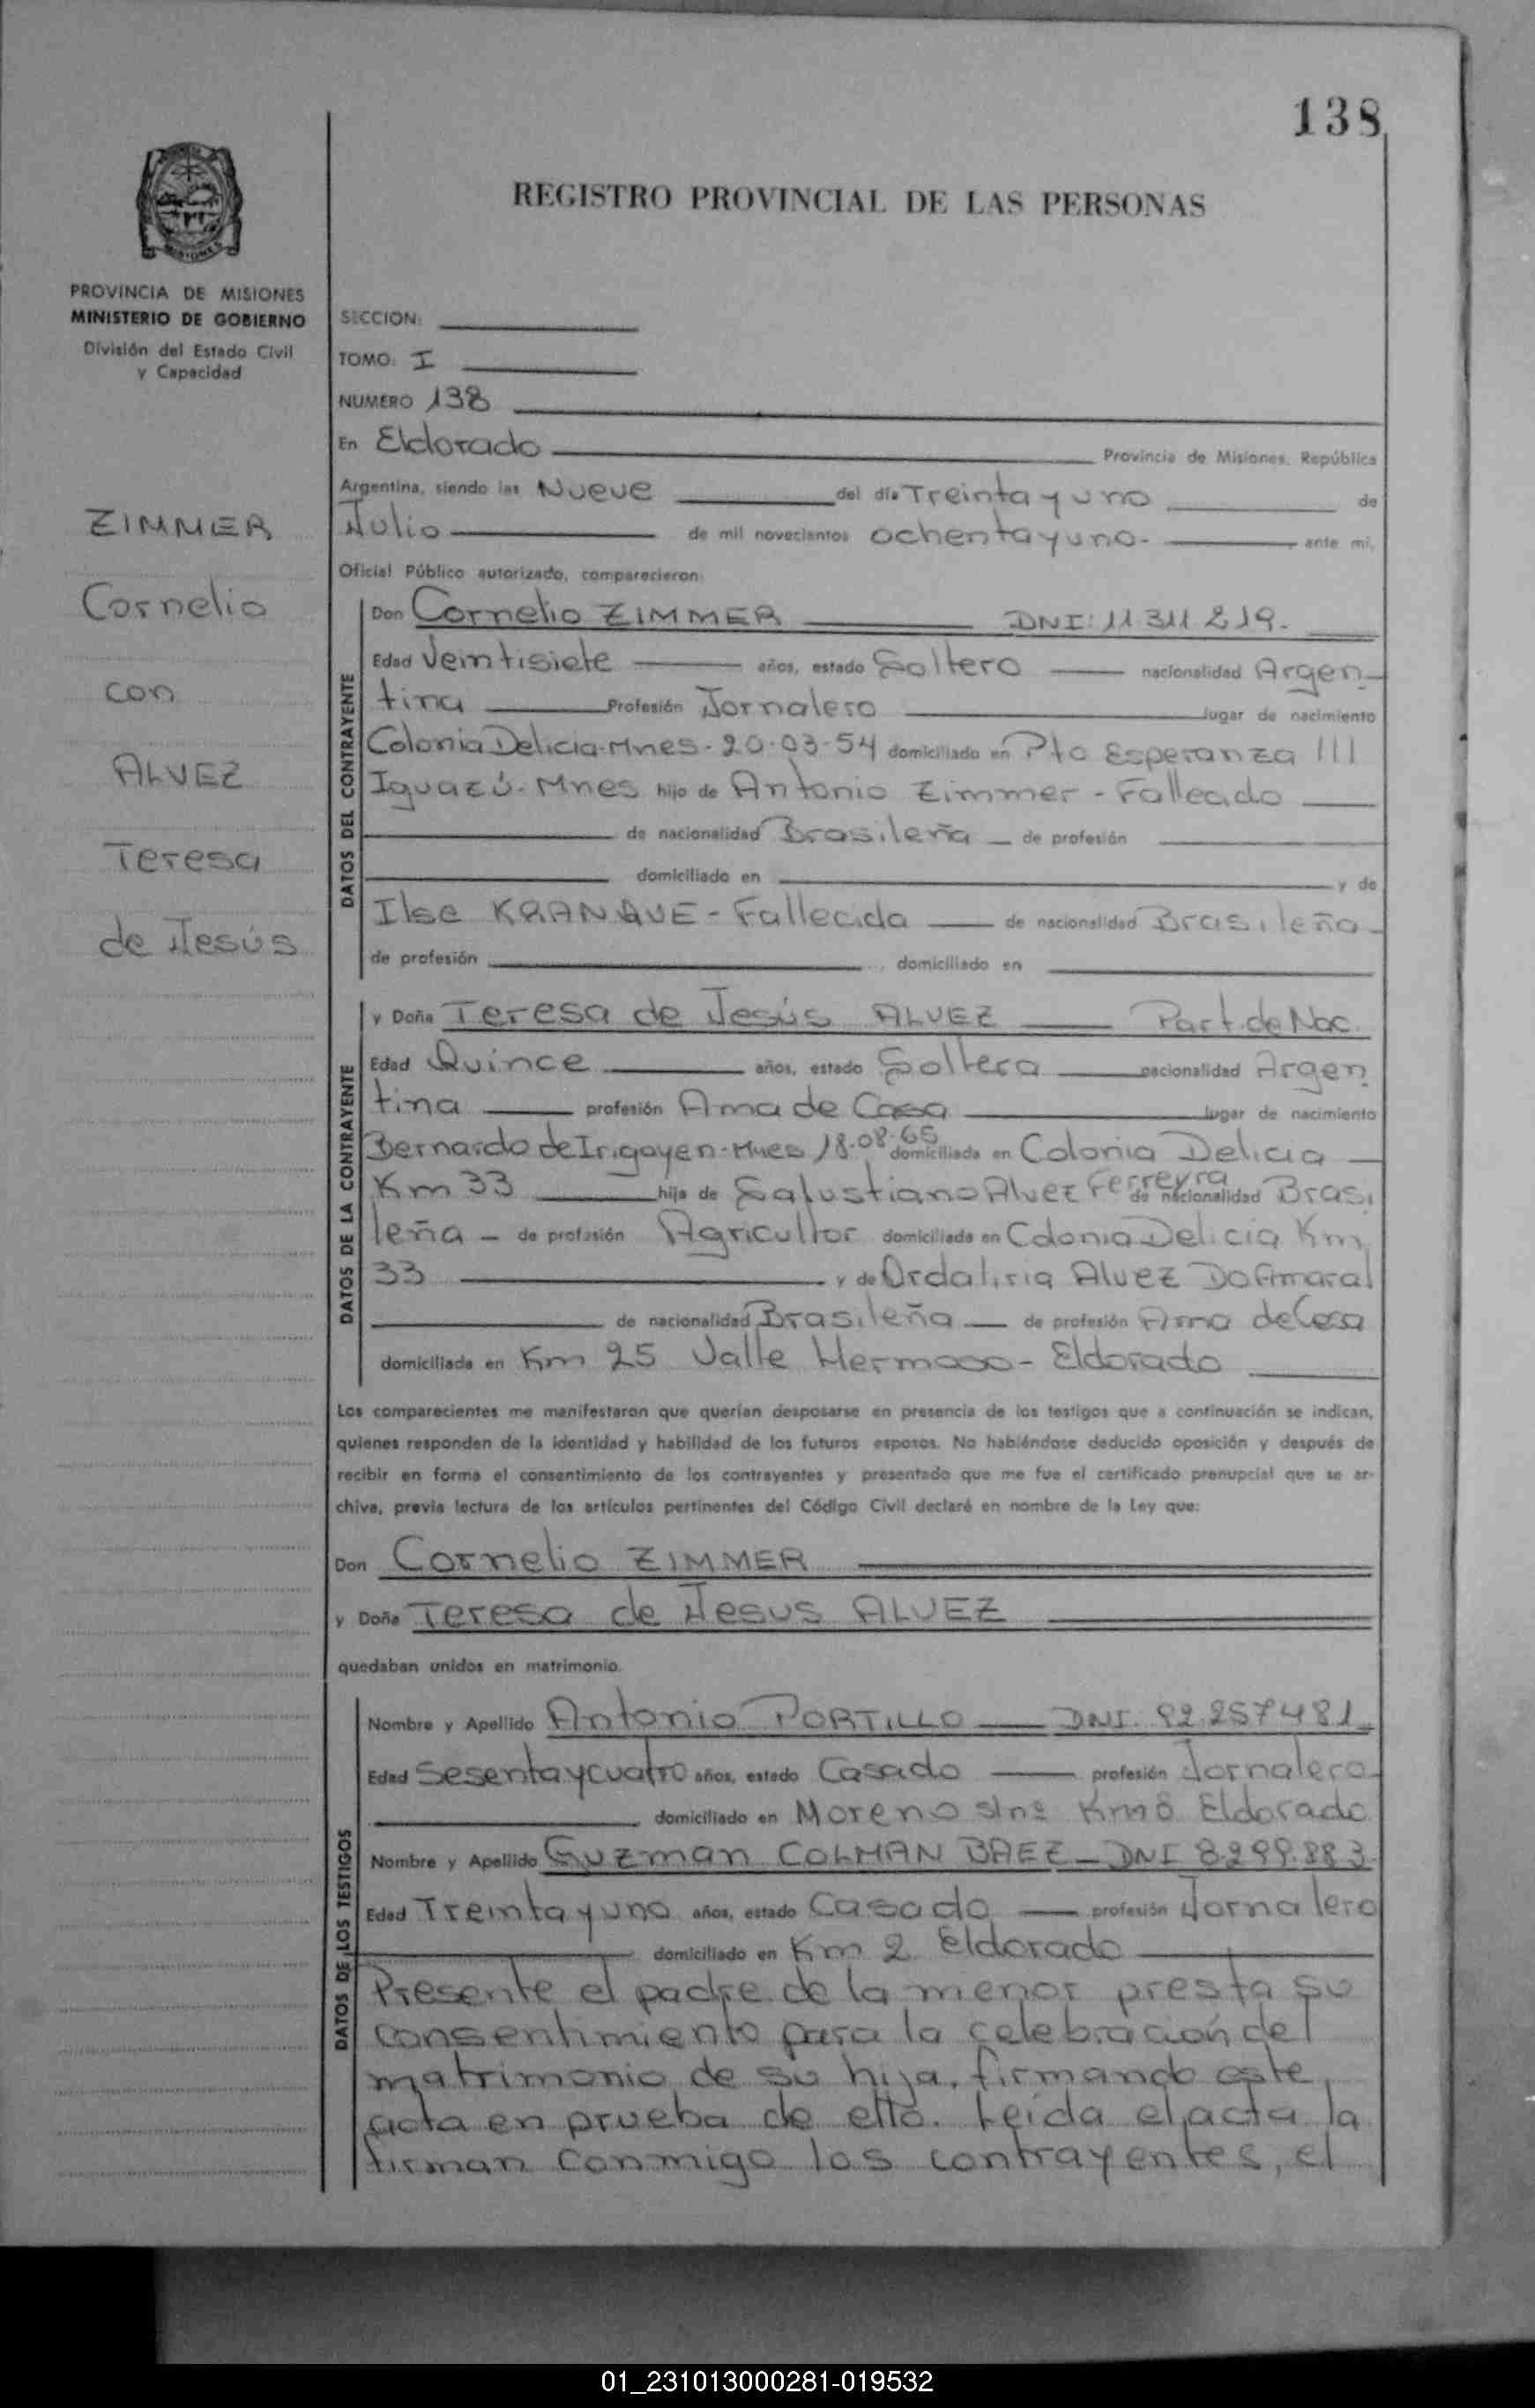 138
REGISTRO PROVINCIAL DE LAS PERSONAS
MISIONES
PROVINCIA DE MISIONES
MINISTERIO DE GOBIERNO
División del Estado Civil
y Capacidad
ZIMMER
Cornelio
con
ALVEZ
Teresa
de Jesús
SECCION:
TOMO: I
NUMERO 138
En Eldorado Provincia de Misiones, República
Argentina, siendo las Nueve del día Treinta y uno de
Julio de mil novecientos ochenta y uno.- ante mí,
Oficial Público autorizado, comparecieron:
DATOS DEL CONTRAYENTE
Don Cornelio ZIMMER DNI: 11 311 219.
Edad Veintisiete años, estado Soltero nacionalidad Argen
tina Profesión Jornalero lugar de nacimiento
Colonia Delicia-Mnes- 20-03-54 domiciliado en Pto Esperanza
Iguazú- Mnes hijo de Antonio Zimmer - Fallecido
de nacionalidad Brasileña de profesión
domiciliado en y de
Ilse KRANQUE - Fallecida de nacionalidad Brasileña
de profesión domiciliado en
DATOS DE LA CONTRAYENTE
y Doña Teresa de Jesús ALVEZ Part. de Nac.
Edad Quince años, estado Soltera nacionalidad Argen
tina profesión Ama de Casa lugar de nacimiento
Bernardo de Irigoyen-Mnes 18-08-65 domiciliada en Colonia Delicia
Km 33 hija de Salustiano Alvez Ferreyra de nacionalidad Brasi
leña - de profesión Agricultor domiciliado en Colonia Delicia Km
33 y de Ordaliria Alvez Do Amaral
de nacionalidad Brasileña de profesión Ama de Casa
domiciliada en Km 25 Valle Hermoso - Eldorado
Los comparecientes me manifestaron que querían desposarse en presencia de los testigos que a continuación se indican,
quienes responden de la identidad y habilidad de los futuros esposos. No habiéndose deducido oposición y después de
recibir en forma el consentimiento de los contrayentes y presentado que me fue el certificado prenupcial que se ar-
chiva, previa lectura de los artículos pertinentes del Código Civil declaré en nombre de la Ley que:
Don Cornelio ZIMMER
y Doña Teresa de Jesus ALVEZ
quedaban unidos en matrimonio.
DATOS DE LOS TESTIGOS
Nombre y Apellido Antonio PORTILLO DNI. 92.257481
Edad Sesenta y cuatro años, estado Casado profesión Jornalero
domiciliado en Moreno s/nº Km 8 Eldorado
Nombre y Apellido Guzman COLMAN BAEZ - DNI 8.299.883
Edad Treinta y uno años, estado Casado profesión Jornalero
domiciliado en Km 2 Eldorado
Presente el padre de la menor presta su
consentimiento para la celebración del
matrimonio de su hija, firmando este
acta en prueba de ello. Leída el acta la
firman conmigo los contrayentes, el
01_231013000281-019532